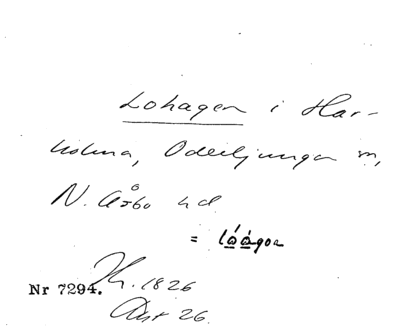 Lohagen i Har-
holma, Oderljunga sn,
N. Åsbo hd.
= lóágon
Nr 7294. Kr. 1826
Avst 26.